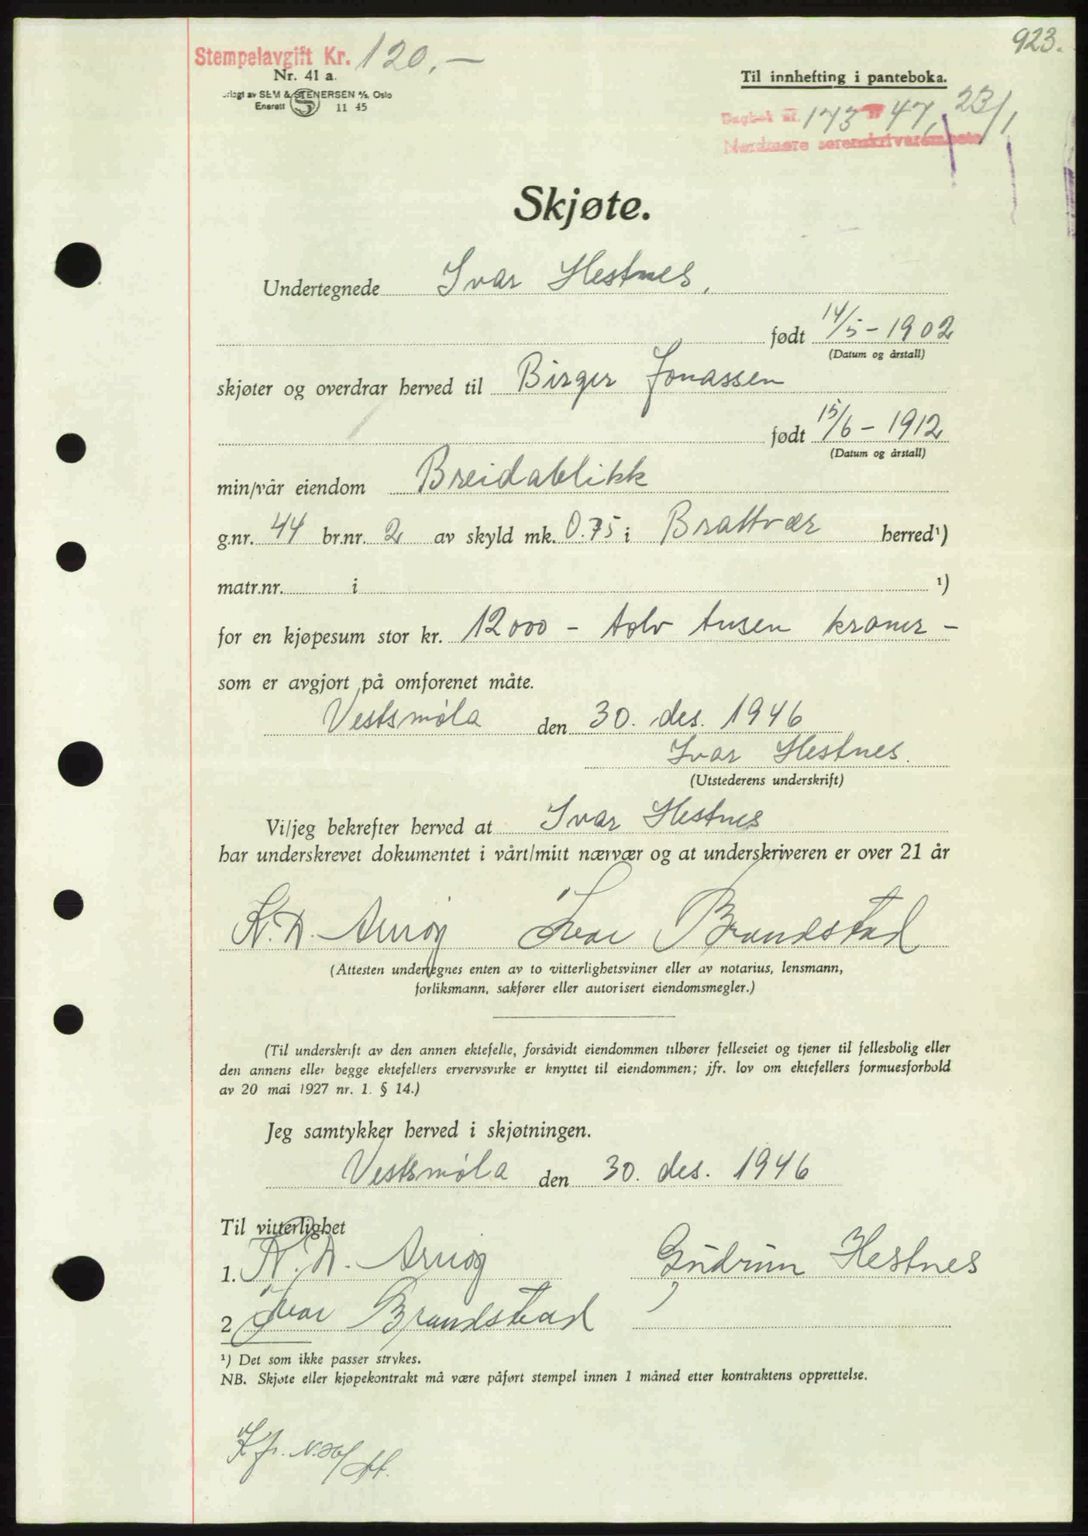 923.
Stempelavgift Kr. 120,—
Nr. 41 a.
Til innhefting i panteboka.
av SEM & STENERSEN A/S, Oslo
Enerett 11 45
Dagbok nr. 173 47, 23/1
Nordmøre sorenskriverembete
Skjøte.
Undertegnede Ivar Hestnes,
født 14/5 - 1902
(Datum og årstall)
skjøter og overdrar herved til Birger Jonassen
født 15/6 - 1912
(Datum og årstall)
min/vår eiendom Breidablikk
g.nr. 44 br.nr. 2 av skyld mk. 0.75 i Brattvær herred¹)
matr.nr. i ¹)
for en kjøpesum stor kr. 12000 - tolv tusen kroner -
som er avgjort på omforenet måte.
Vestsmøla den 30. des. 1946
Ivar Hestnes.
(Utstederens underskrift)
Vi/jeg bekrefter herved at Ivar Hestnes
har underskrevet dokumentet i vårt/mitt nærvær og at underskriveren er over 21 år
K. D. Arnøy Ivar Brandstad
(Attesten undertegnes enten av to vitterlighetsvitner eller av notarius, lensmann,
forliksmann, sakfører eller autorisert eiendomsmegler.)
(Til underskrift av den annen ektefelle, forsåvidt eiendommen tilhører felleseiet og tjener til fellesbolig eller
den annens eller begge ektefellers ervervsvirke er knyttet til eiendommen; jfr. lov om ektefellers formuesforhold
av 20 mai 1927 nr. 1. § 14.)
Jeg samtykker herved i skjøtningen.
Vestsmøla den 30. des. 1946
Til vitterlighet
1. K. D. Arnøy Gudrun Hestnes
2 Ivar Brandstad
¹) Det som ikke passer strykes.
NB. Skjøte eller kjøpekontrakt må være påført stempel innen 1 måned etter kontraktens opprettelse.